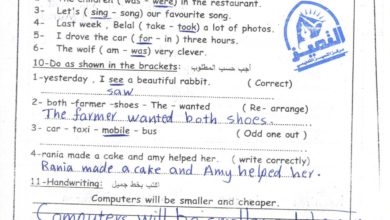 The children ( was - were) in the restaurant.
3- Let's ( sing - song) our favourite song.
4- Last week , Belal ( take - took) a lot of photos.
5- I drove the car ( for - in ) three hours.
6- The wolf ( am - was) very clever.
النصر
10-Do as shown in the brackets: أجب حسب المطلوب
1-yesterday , I see a beautiful rabbit. ( Correct)
saw
2- both -farmer -shoes - The - wanted ( Re- arrange)
The farmer wanted both shoes.
3- car - taxi - mobile - bus ( Odd one out )
4-rania made a cake and amy helped her. ( write correctly)
Rania made a cake and Amy helped her.
11-Handwriting: اكتب بخط جميل
Computers will be smaller and cheaper.
Computers will be smaller